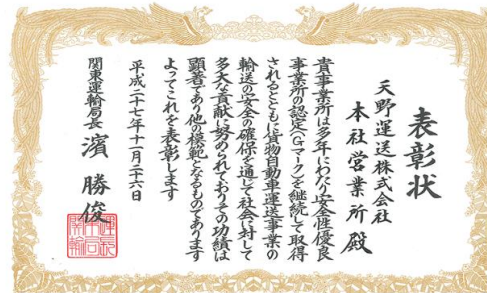 表彰状
天野運送株式会社
本社営業所殿
貴事業所は多年にわたり安全性優良
事業所の認定(Gマーク)を継続して取得
されるとともに貨物自動車運送事業の
輸送の安全の確保を通じて社会に対して
多大な貢献に努められておりその功績は
顕著であり他の模範となるものであります
よってこれを表彰します
平成二十七年十一月二十六日
関東運輸局長 濱勝俊